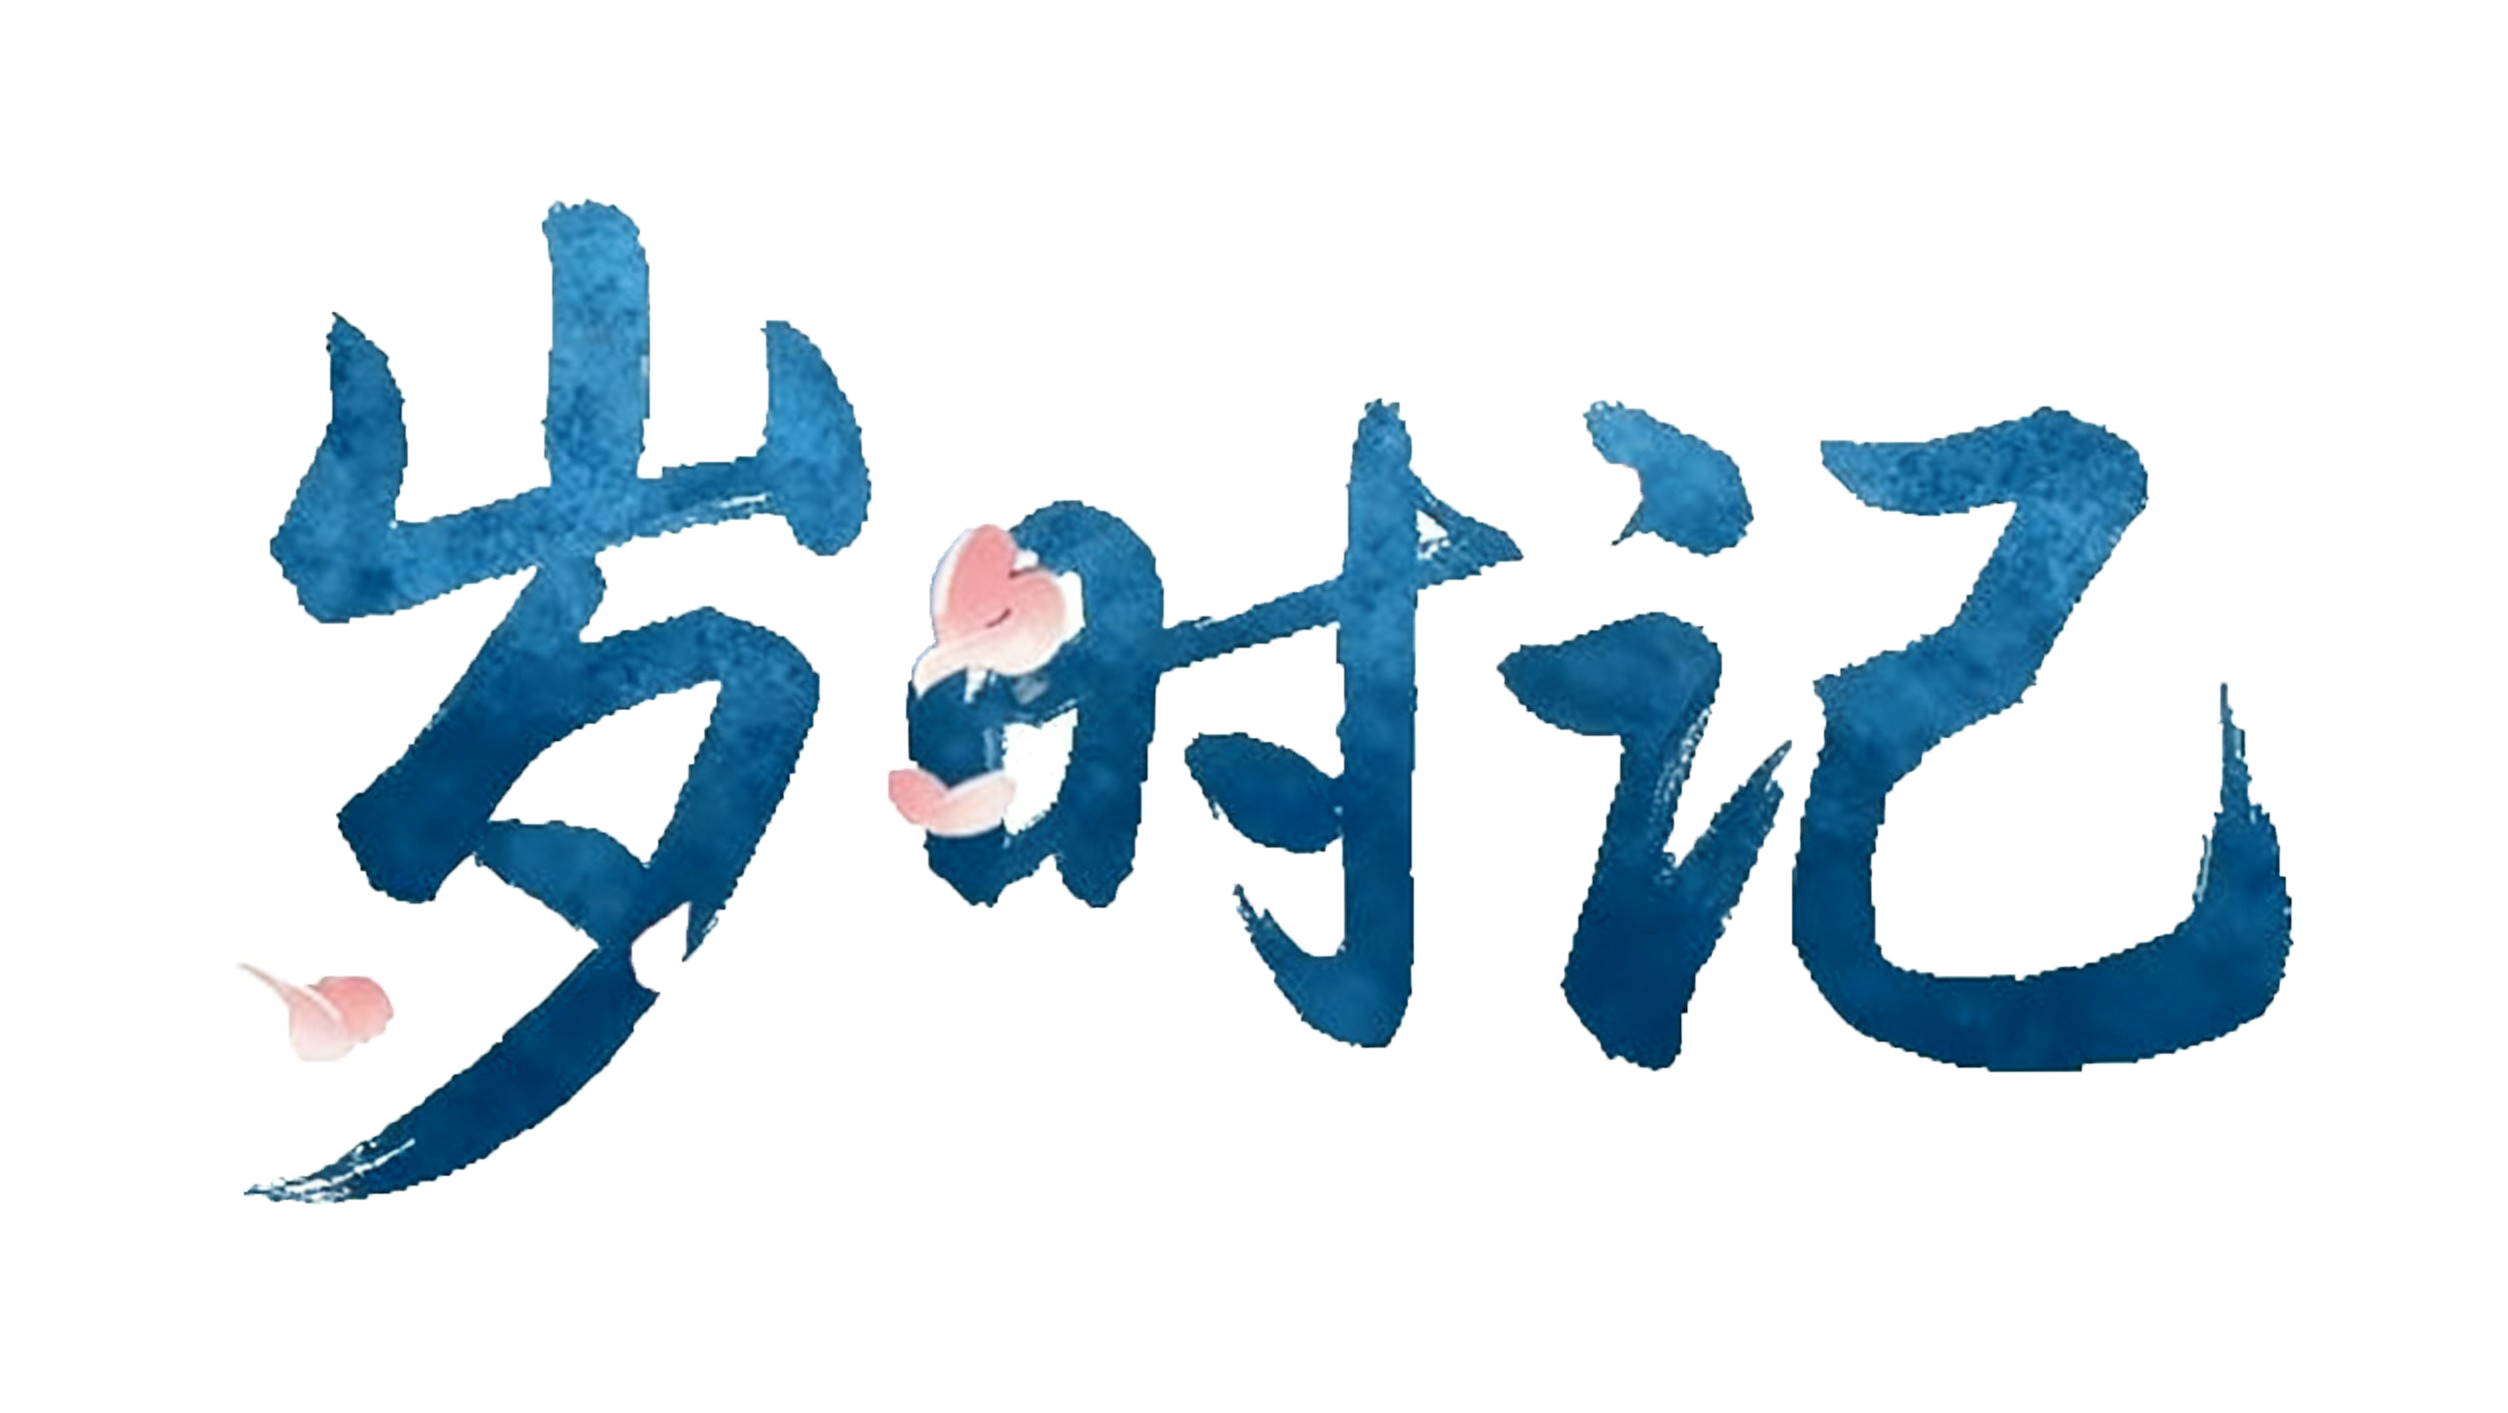 岁时记